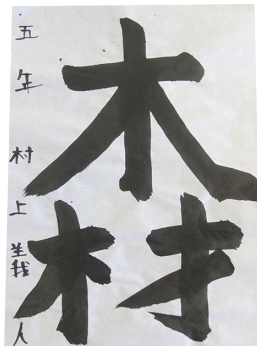 木材
五年 村上義人